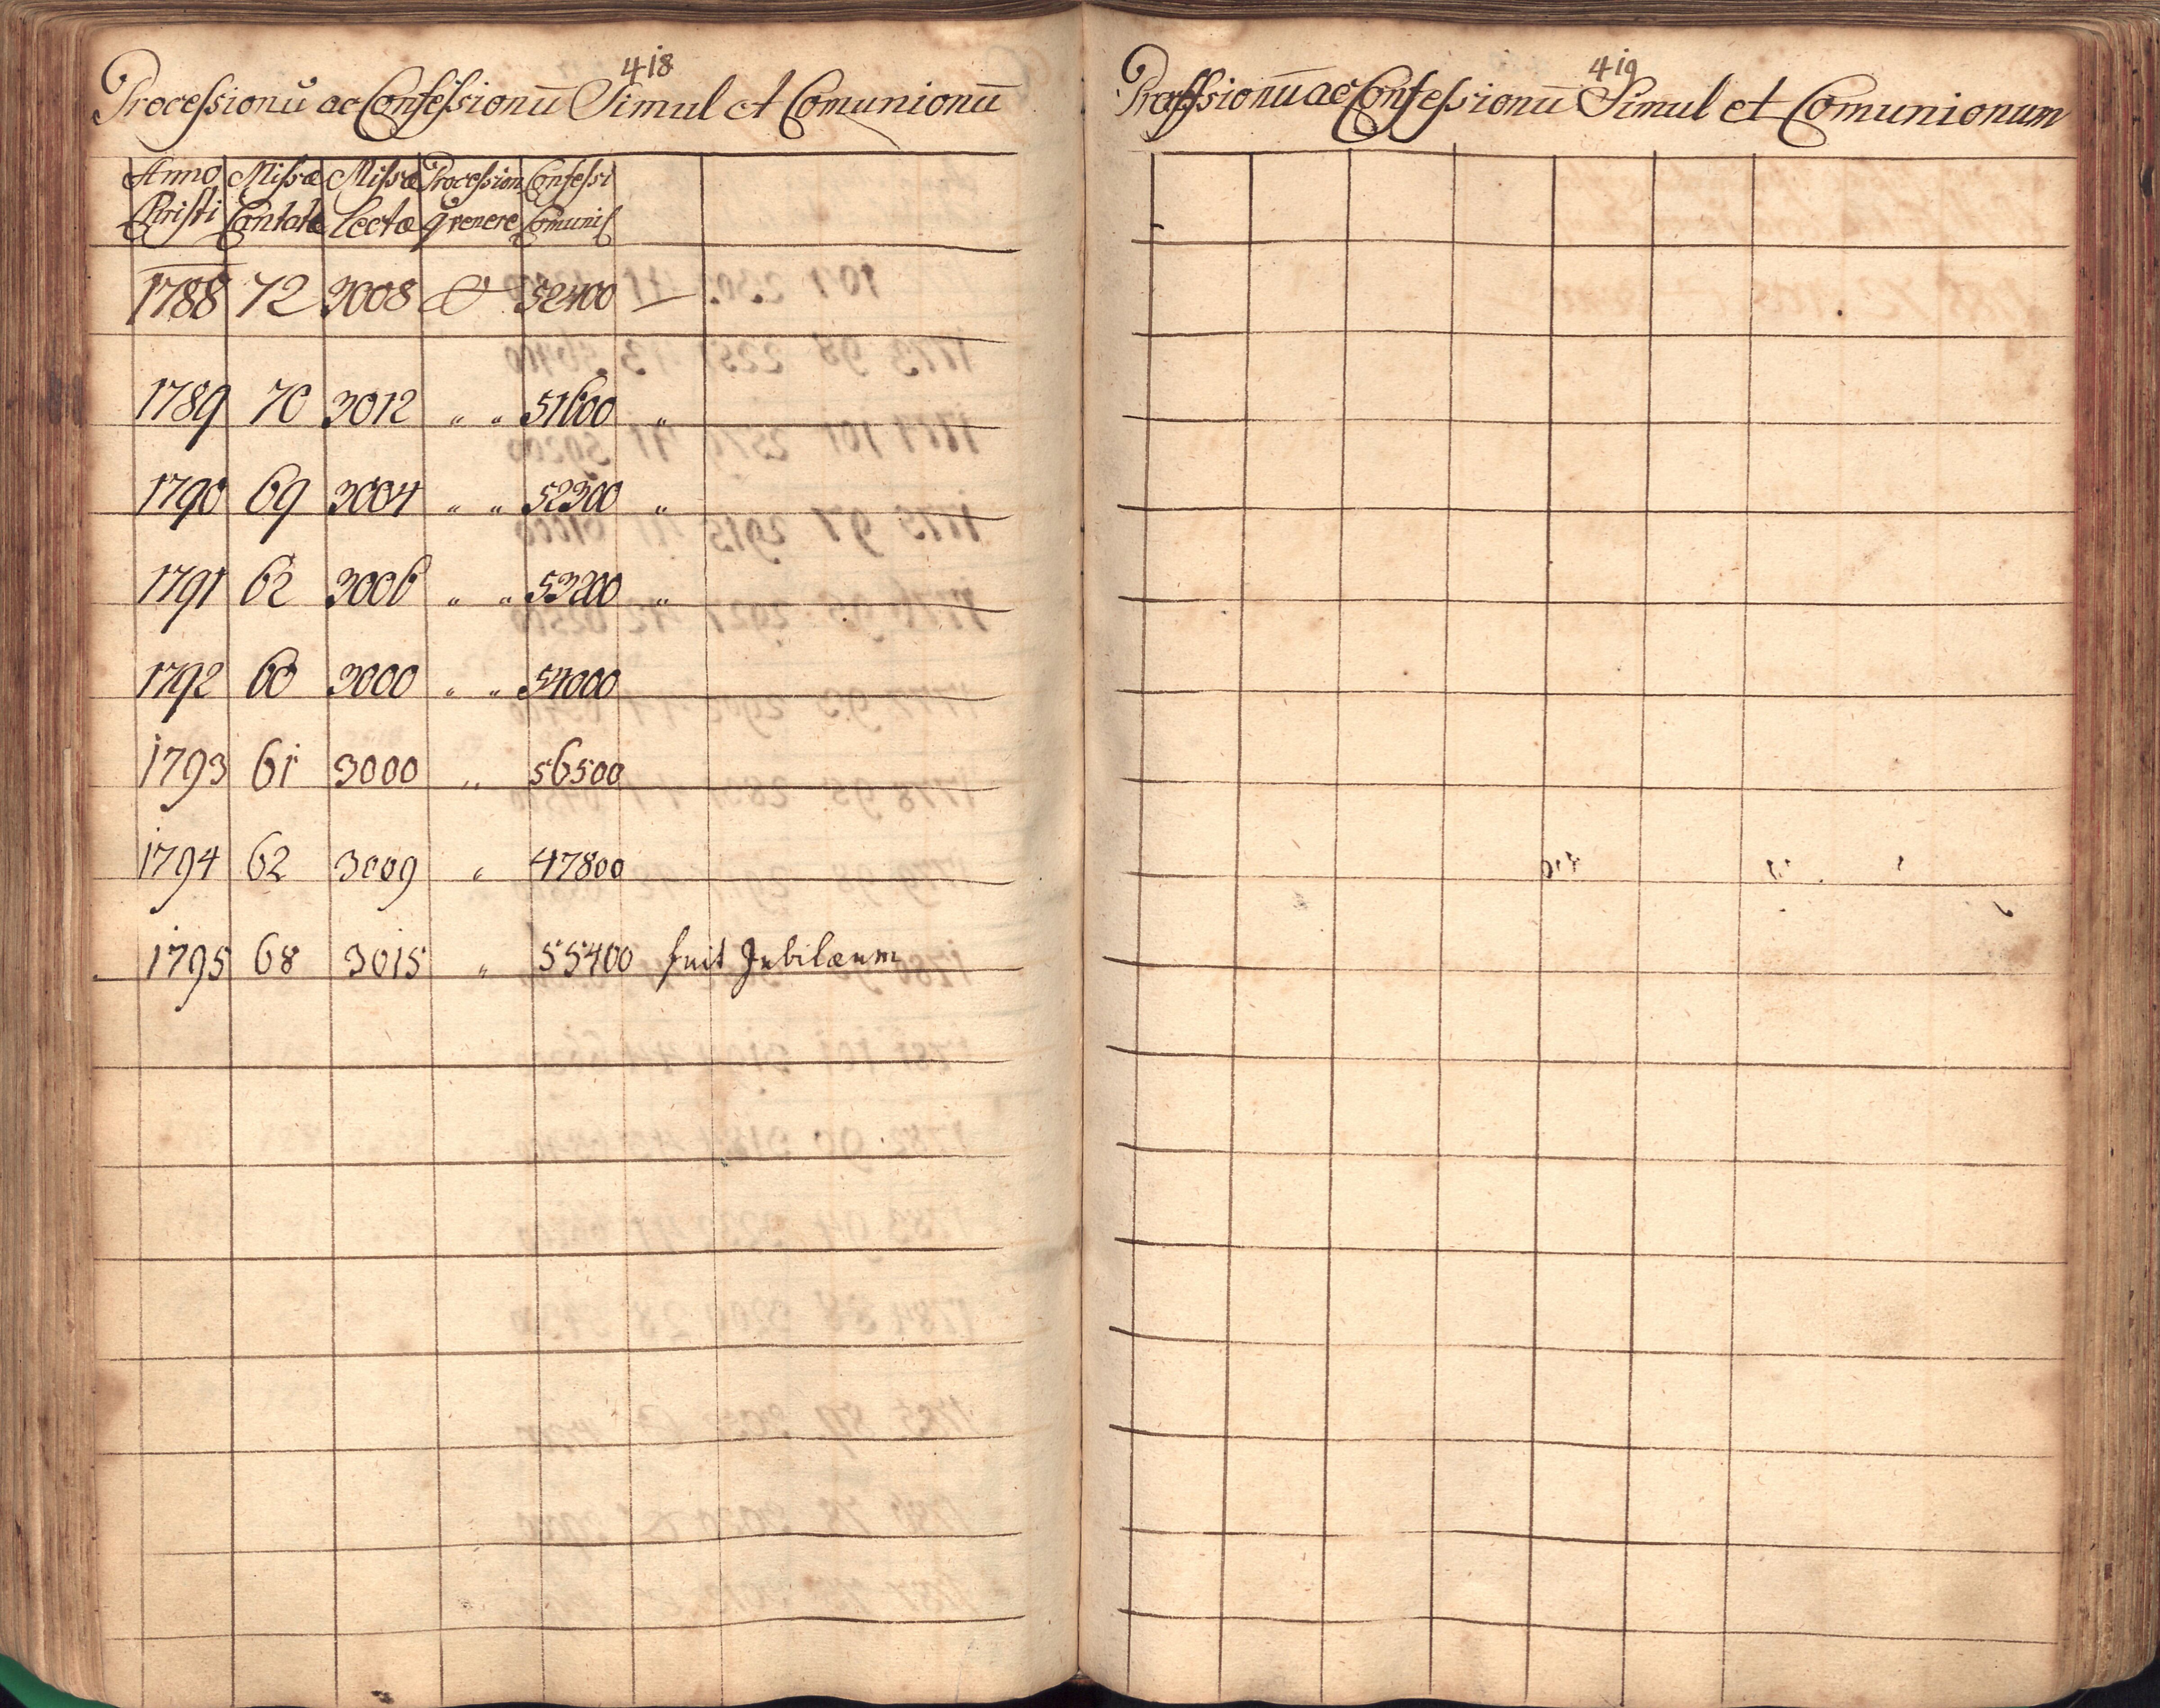 418
Processionū ac Confessionū Simul et Comunionū
Anno Missæ Missæ Procession Confessi
Christi Cantatæ Lectæ qvenere Comuni
1788 72 3008 52400 —
1789 70 3012 „ „ 51600 „
1790 69 3004 „ „ 52300 „
1791 62 3006 „ „ 53200 „
1792 60 3000 „ „ 54000
1793 61 3000 „ 56500
1794 62 3009 „ 47800
1795 68 3015 „ 55400 fuit Jubilæum
419
Processionū ac Confessionū Simul et Comunionum